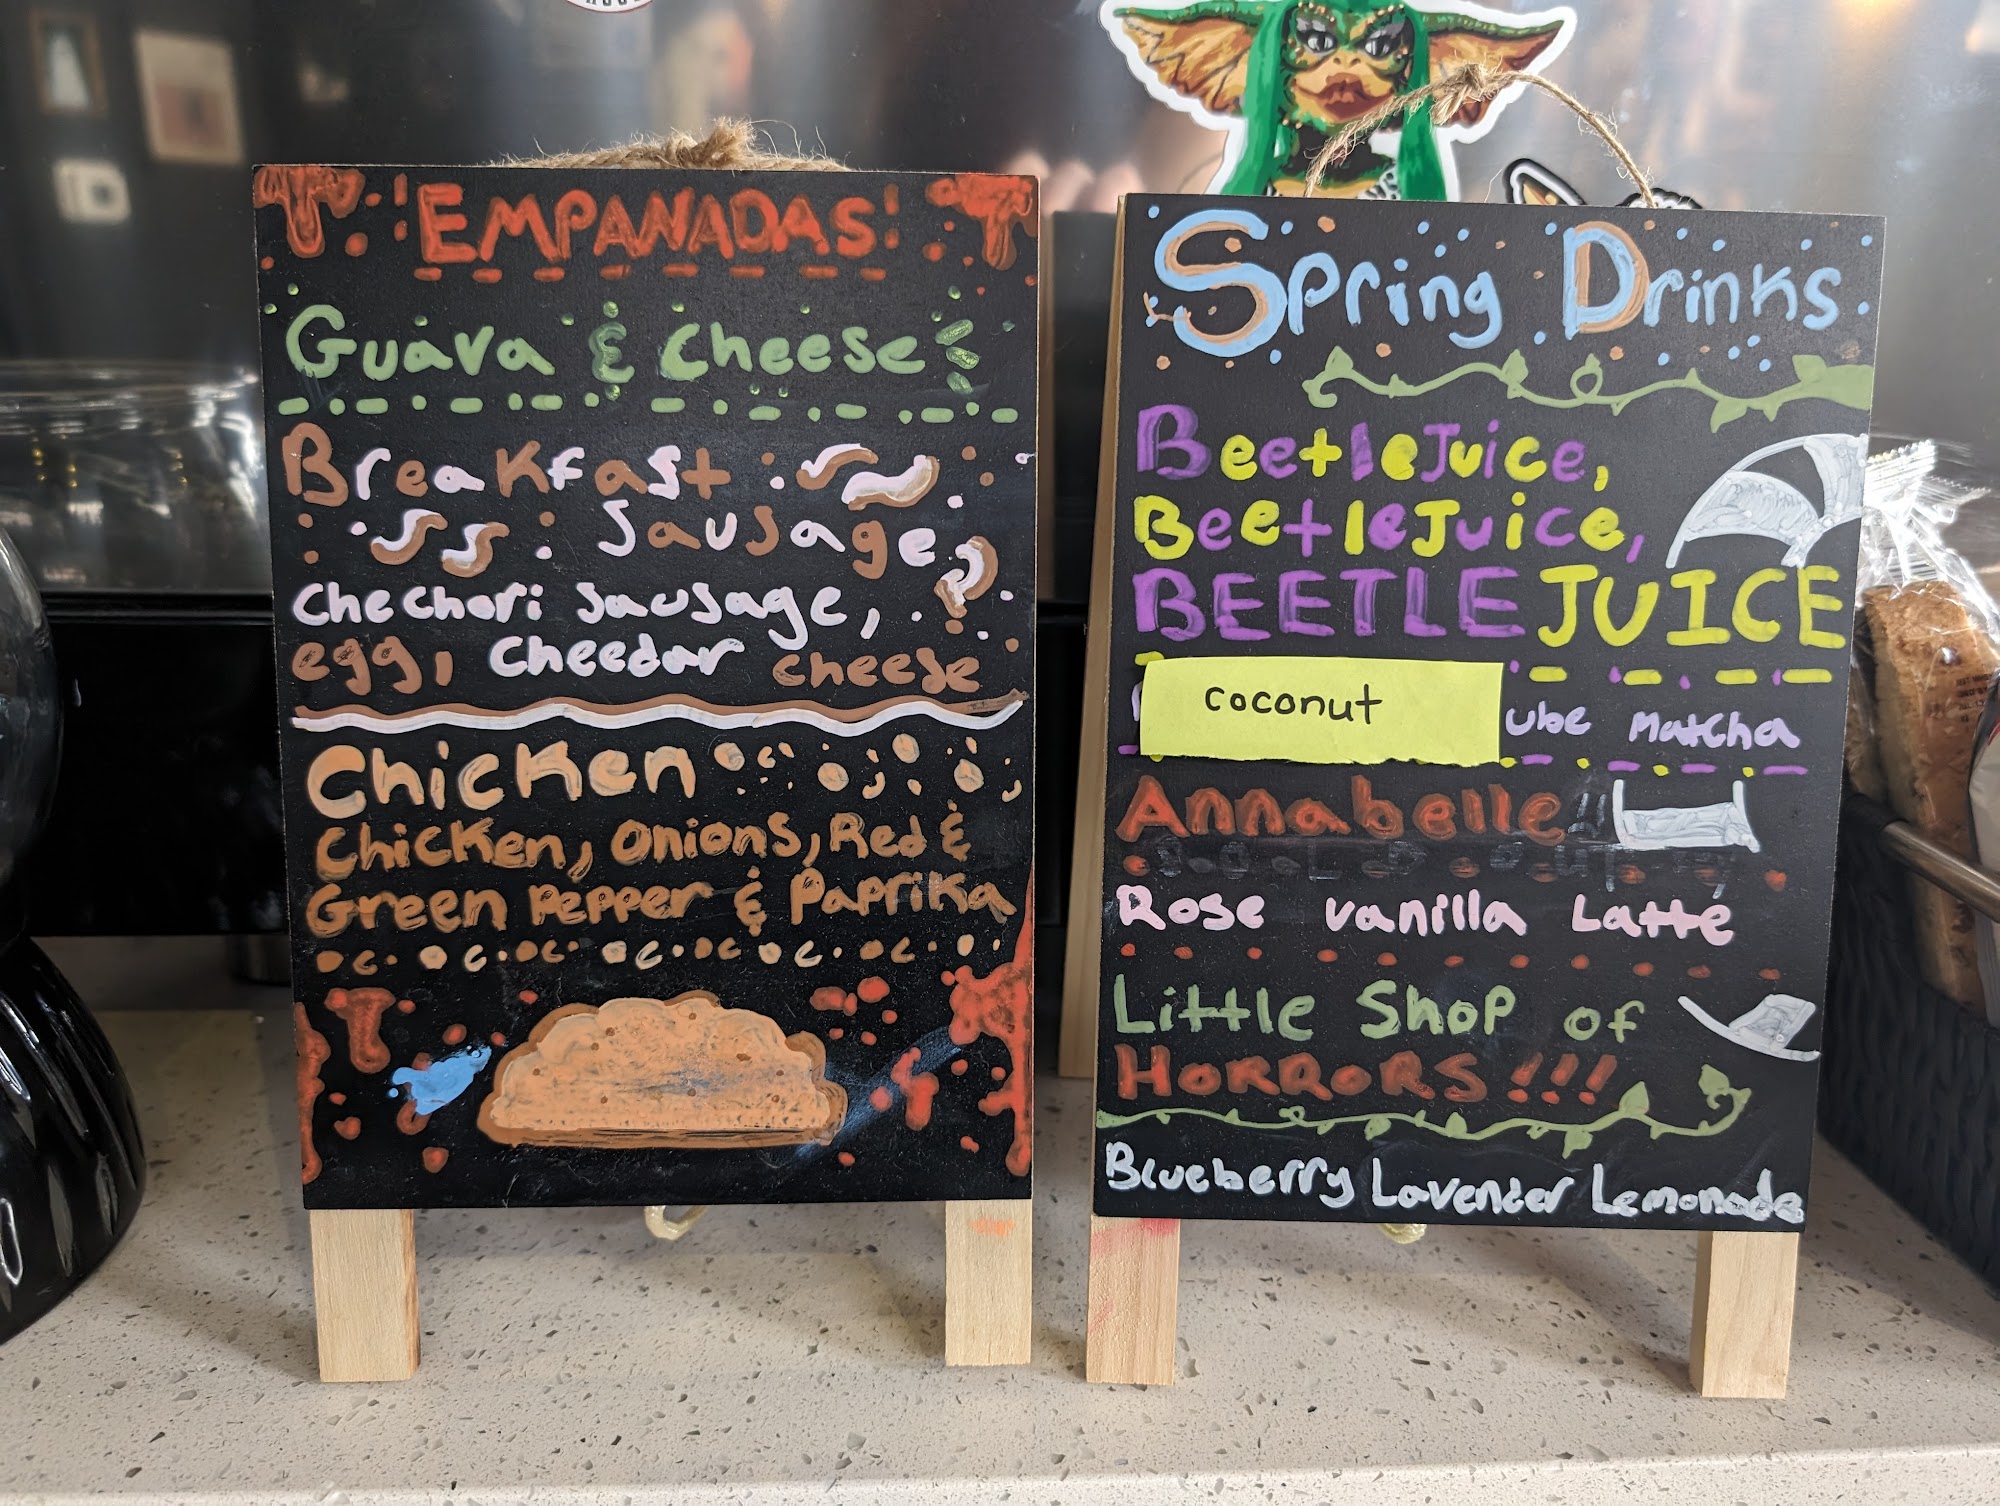 EMPANADAS
Guava & Cheese
Breakfast
Sausage
Chechori Sausage,
egg, Cheedar cheese
Chicken
Chicken, Onions, Red &
Green Pepper & Paprika
Spring Drinks
BeetleJuice,
BeetleJuice,
BEETLEJUICE
coconut ube Matcha
Annabelle
Rose vanilla Latte
Little Shop of
HORRORS!!!
Blueberry Lavender Lemonade